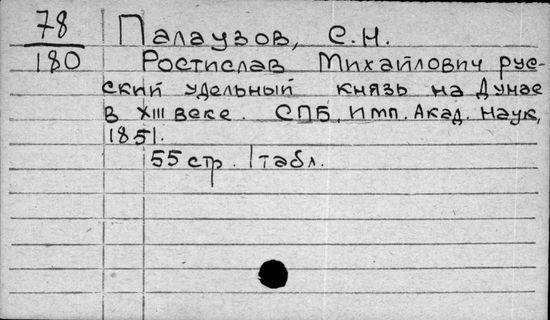 78 Палаузов, С.Н.
180 Ростислав Михайлович рус-
ский удельный князь на Дунае
в XIII веке. СПБ. Имп. Акад. Наук,
1851.
55 стр. 1 табл.